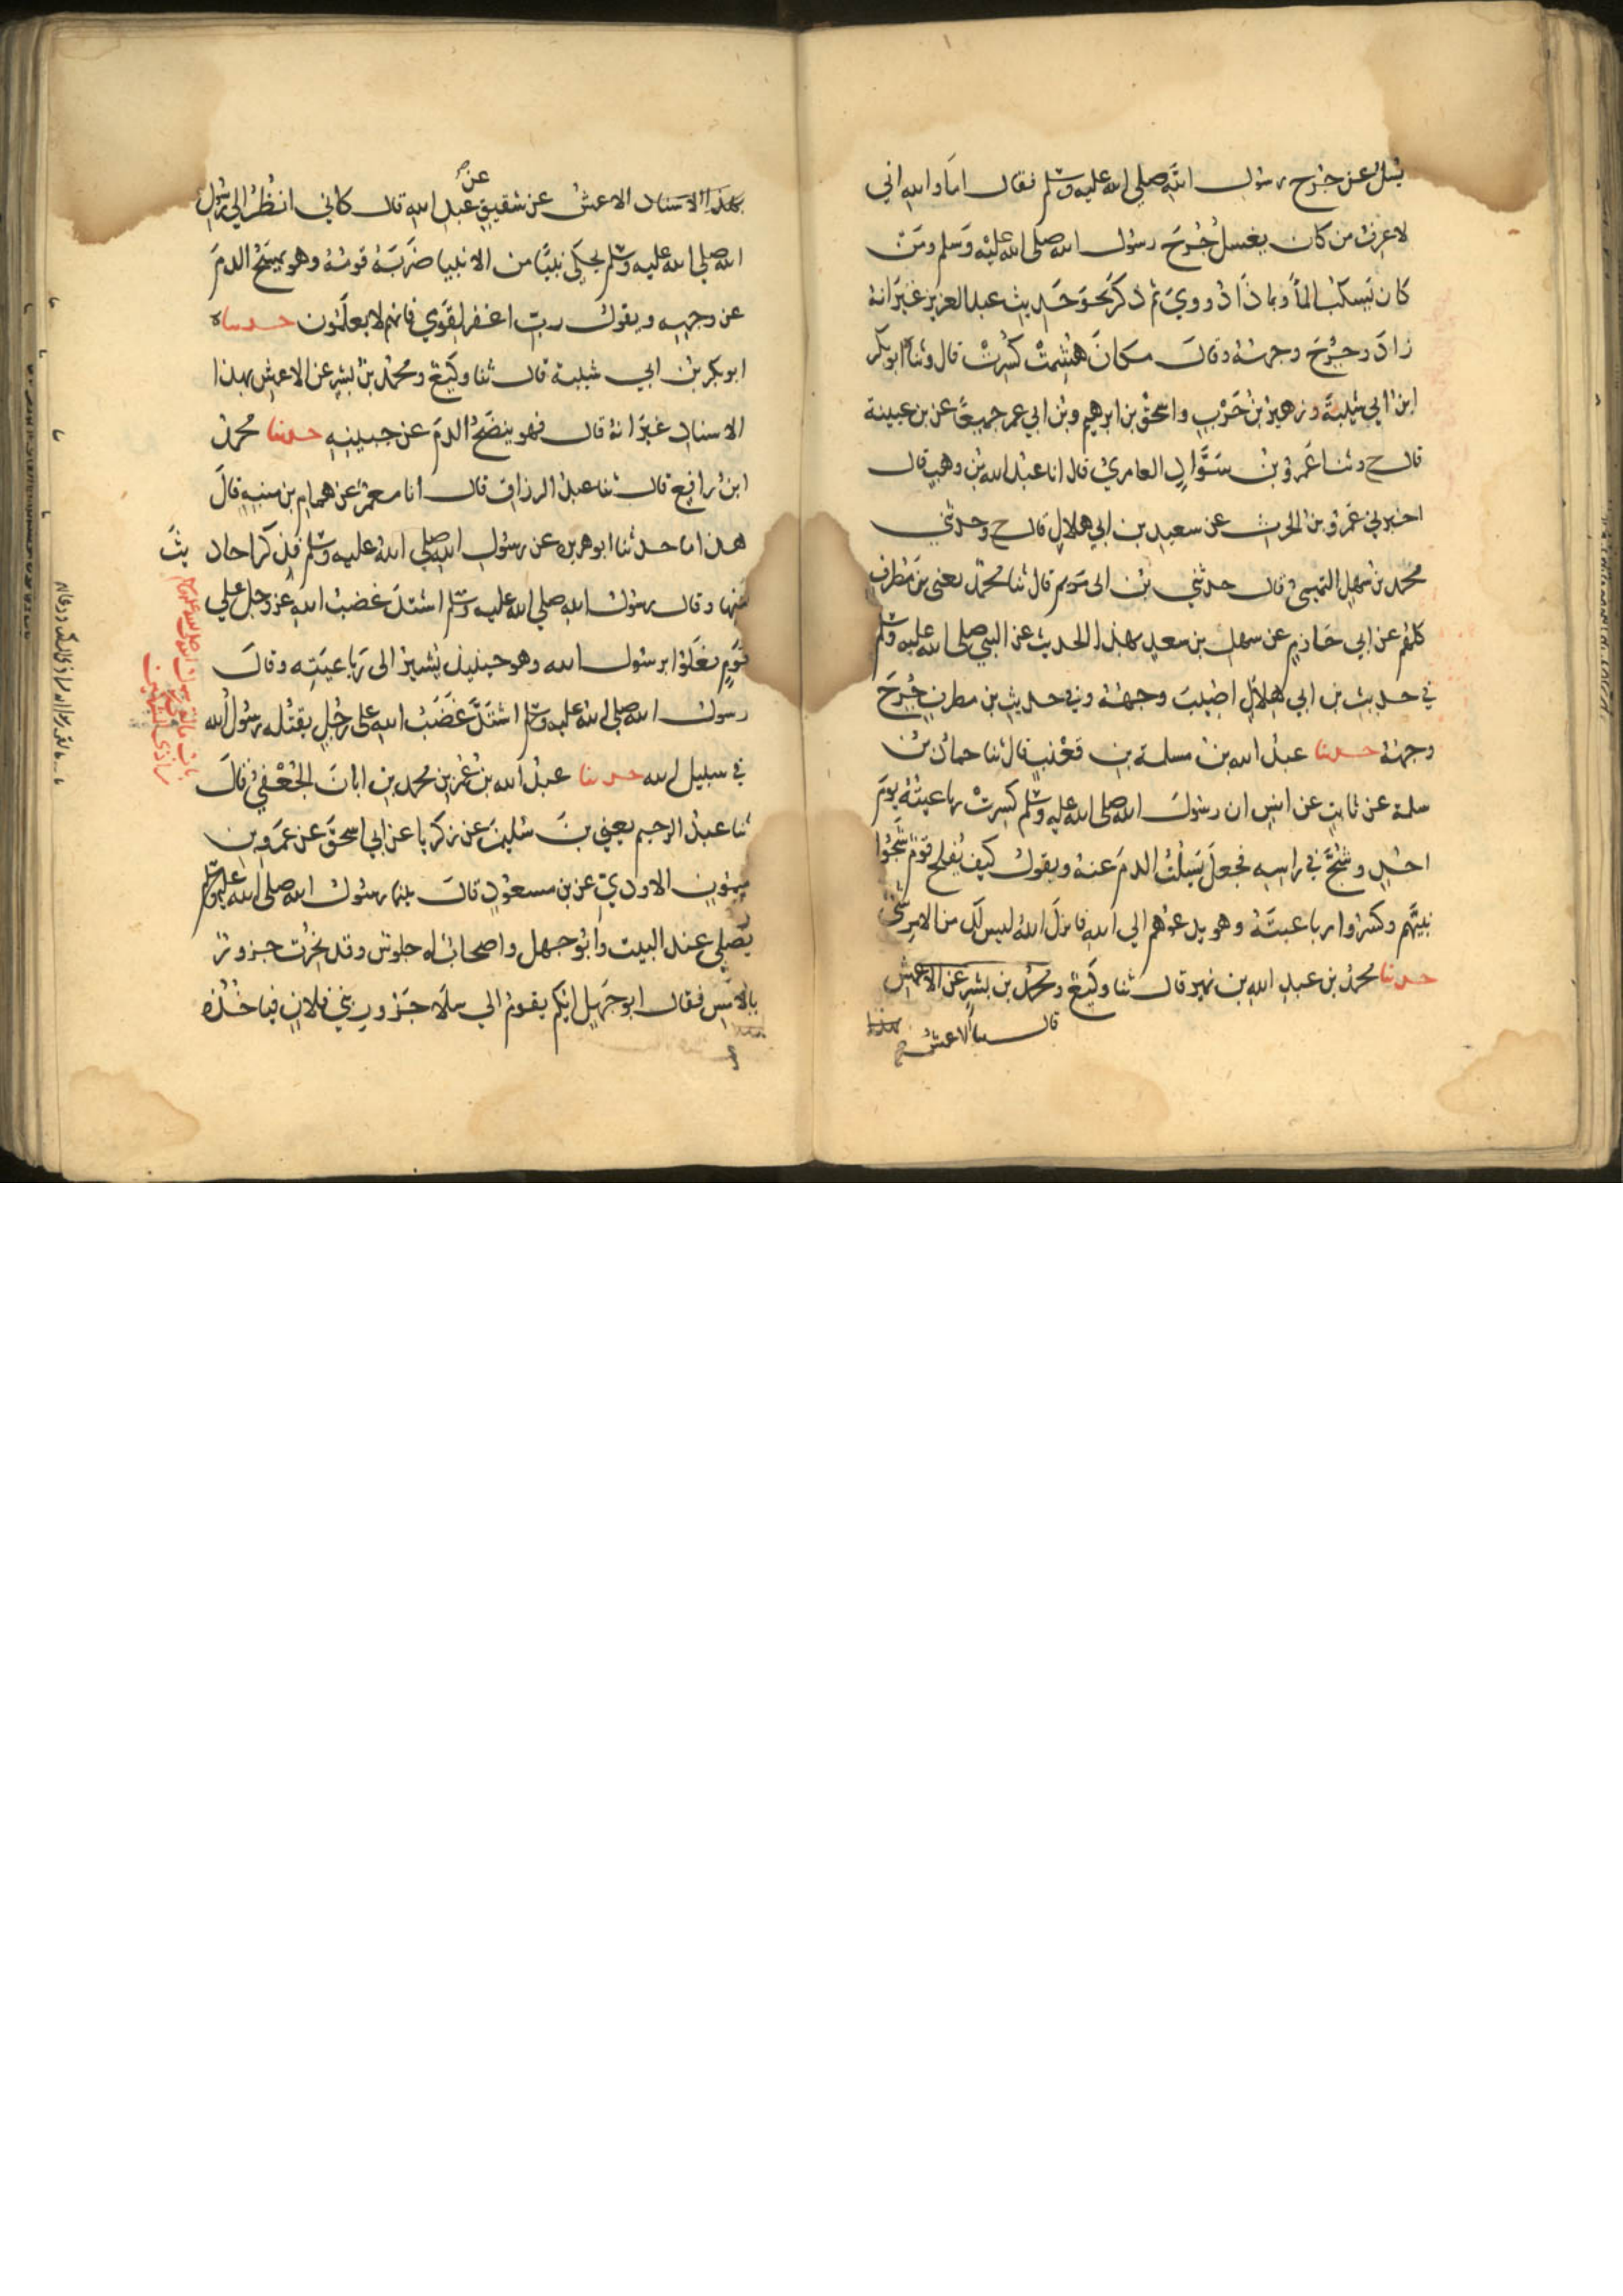 يسئل عن جرح رسول الله صلى الله عليه وسلم فقال اما والله اني
لاعرف من كان يغسل جرح رسول الله صلى الله عليه وسلم ومن
كان يسكب الماء وبماذا دووي ثم ذكر نحو حديث عبد العزيز غير انه
زاد وجرح وجهه وقال مكان هشمت كسرت قال وثنا ابو بكر
ابن ابي شيبة وزهير بن حرب واسحق بن ابرهيم وبن ابي عمر جميعا عن بن عيينة
قال ح وثنا عمرو بن سواد العامري قال انا عبد الله بن وهب قال
اخبرني عمرو بن الحرث عن سعيد بن ابي هلال قال ح وحدثني
محمد بن سهل التميمي قال حدثني بن ابي مريم قال ثنا محمد يعني بن مطرف
كلهم عن ابي حازم عن سهل بن سعد بهذا الحديث عن النبي صلى الله عليه وسلم
في حديث بن ابي هلال اصيب وجهه وفي حديث بن مطرف جرح
وجهه حدثنا عبد الله بن مسلمة بن قعنب قال ثنا حماد بن
سلمة عن ثابت عن انس ان رسول الله صلى الله عليه وسلم كسرت رباعيته يوم
احد وشج في راسه فجعل يسلت الدم عنه ويقول كيف يفلح قوم شجوا
نبيهم وكسروا رباعيته وهو يدعوهم الي الله فانزل الله ليس لك من الامر شئ
حدثنا محمد بن عبد الله بن نمير قال ثنا وكيع ومحمد بن بشر عن الاعمش
قال ثنا الاعمش
بهذا
بهذا الاسناد الاعمش عن شقيق عن عبد الله قال كاني انظر الي رسول
الله صلي الله عليه وسلم يحكي نبيا من الانبيا ضربه قومه وهو يمسح الدم
عن وجهه ويقول رب اغفر لقومي فانهم لا يعلمون حدثناه
ابو بكر بن ابي شيبة قال ثنا وكيع ومحمد بن بشر عن الاعمش بهذا
الاسناد غير انه قال فهو ينضح الدم عن جبينه حدثنا محمد
ابن رافع قال ثنا عبد الرزاق قال انا معمر عن همام بن منبه قال
هذا ما حدثنا ابو هريره عن رسول الله صلي الله عليه وسلم فذكر احاديث
منها وقال رسول الله صلي الله عليه وسلم اشتد غضب الله عز وجل علي
قوم فعلوا برسول الله وهو حينيذ يشير الى رباعيته وقال
رسول الله صلي الله عليه وسلم اشتد غضب الله على رجل يقتله رسول الله
في سبيل الله حدثنا عبد الله بن عمر بن محمد بن ابان الجعفي قال
ثنا عبد الرحيم يعني بن سليمن عن زكريا عن ابي اسحق عن عمرو بن
ميمون الاودي عن بن مسعود قال بينما رسول الله صلى الله عليه وسلم
يصلي عند البيت وابو جهل واصحاب له جلوس وقد نحرت جزور
بالامس فقال ابو جهل ايكم يقوم الي سلا جزور بني فلان فياخذه
باب ما لقي رسول الله صلى الله عليه وسلم
من اذى المشركين